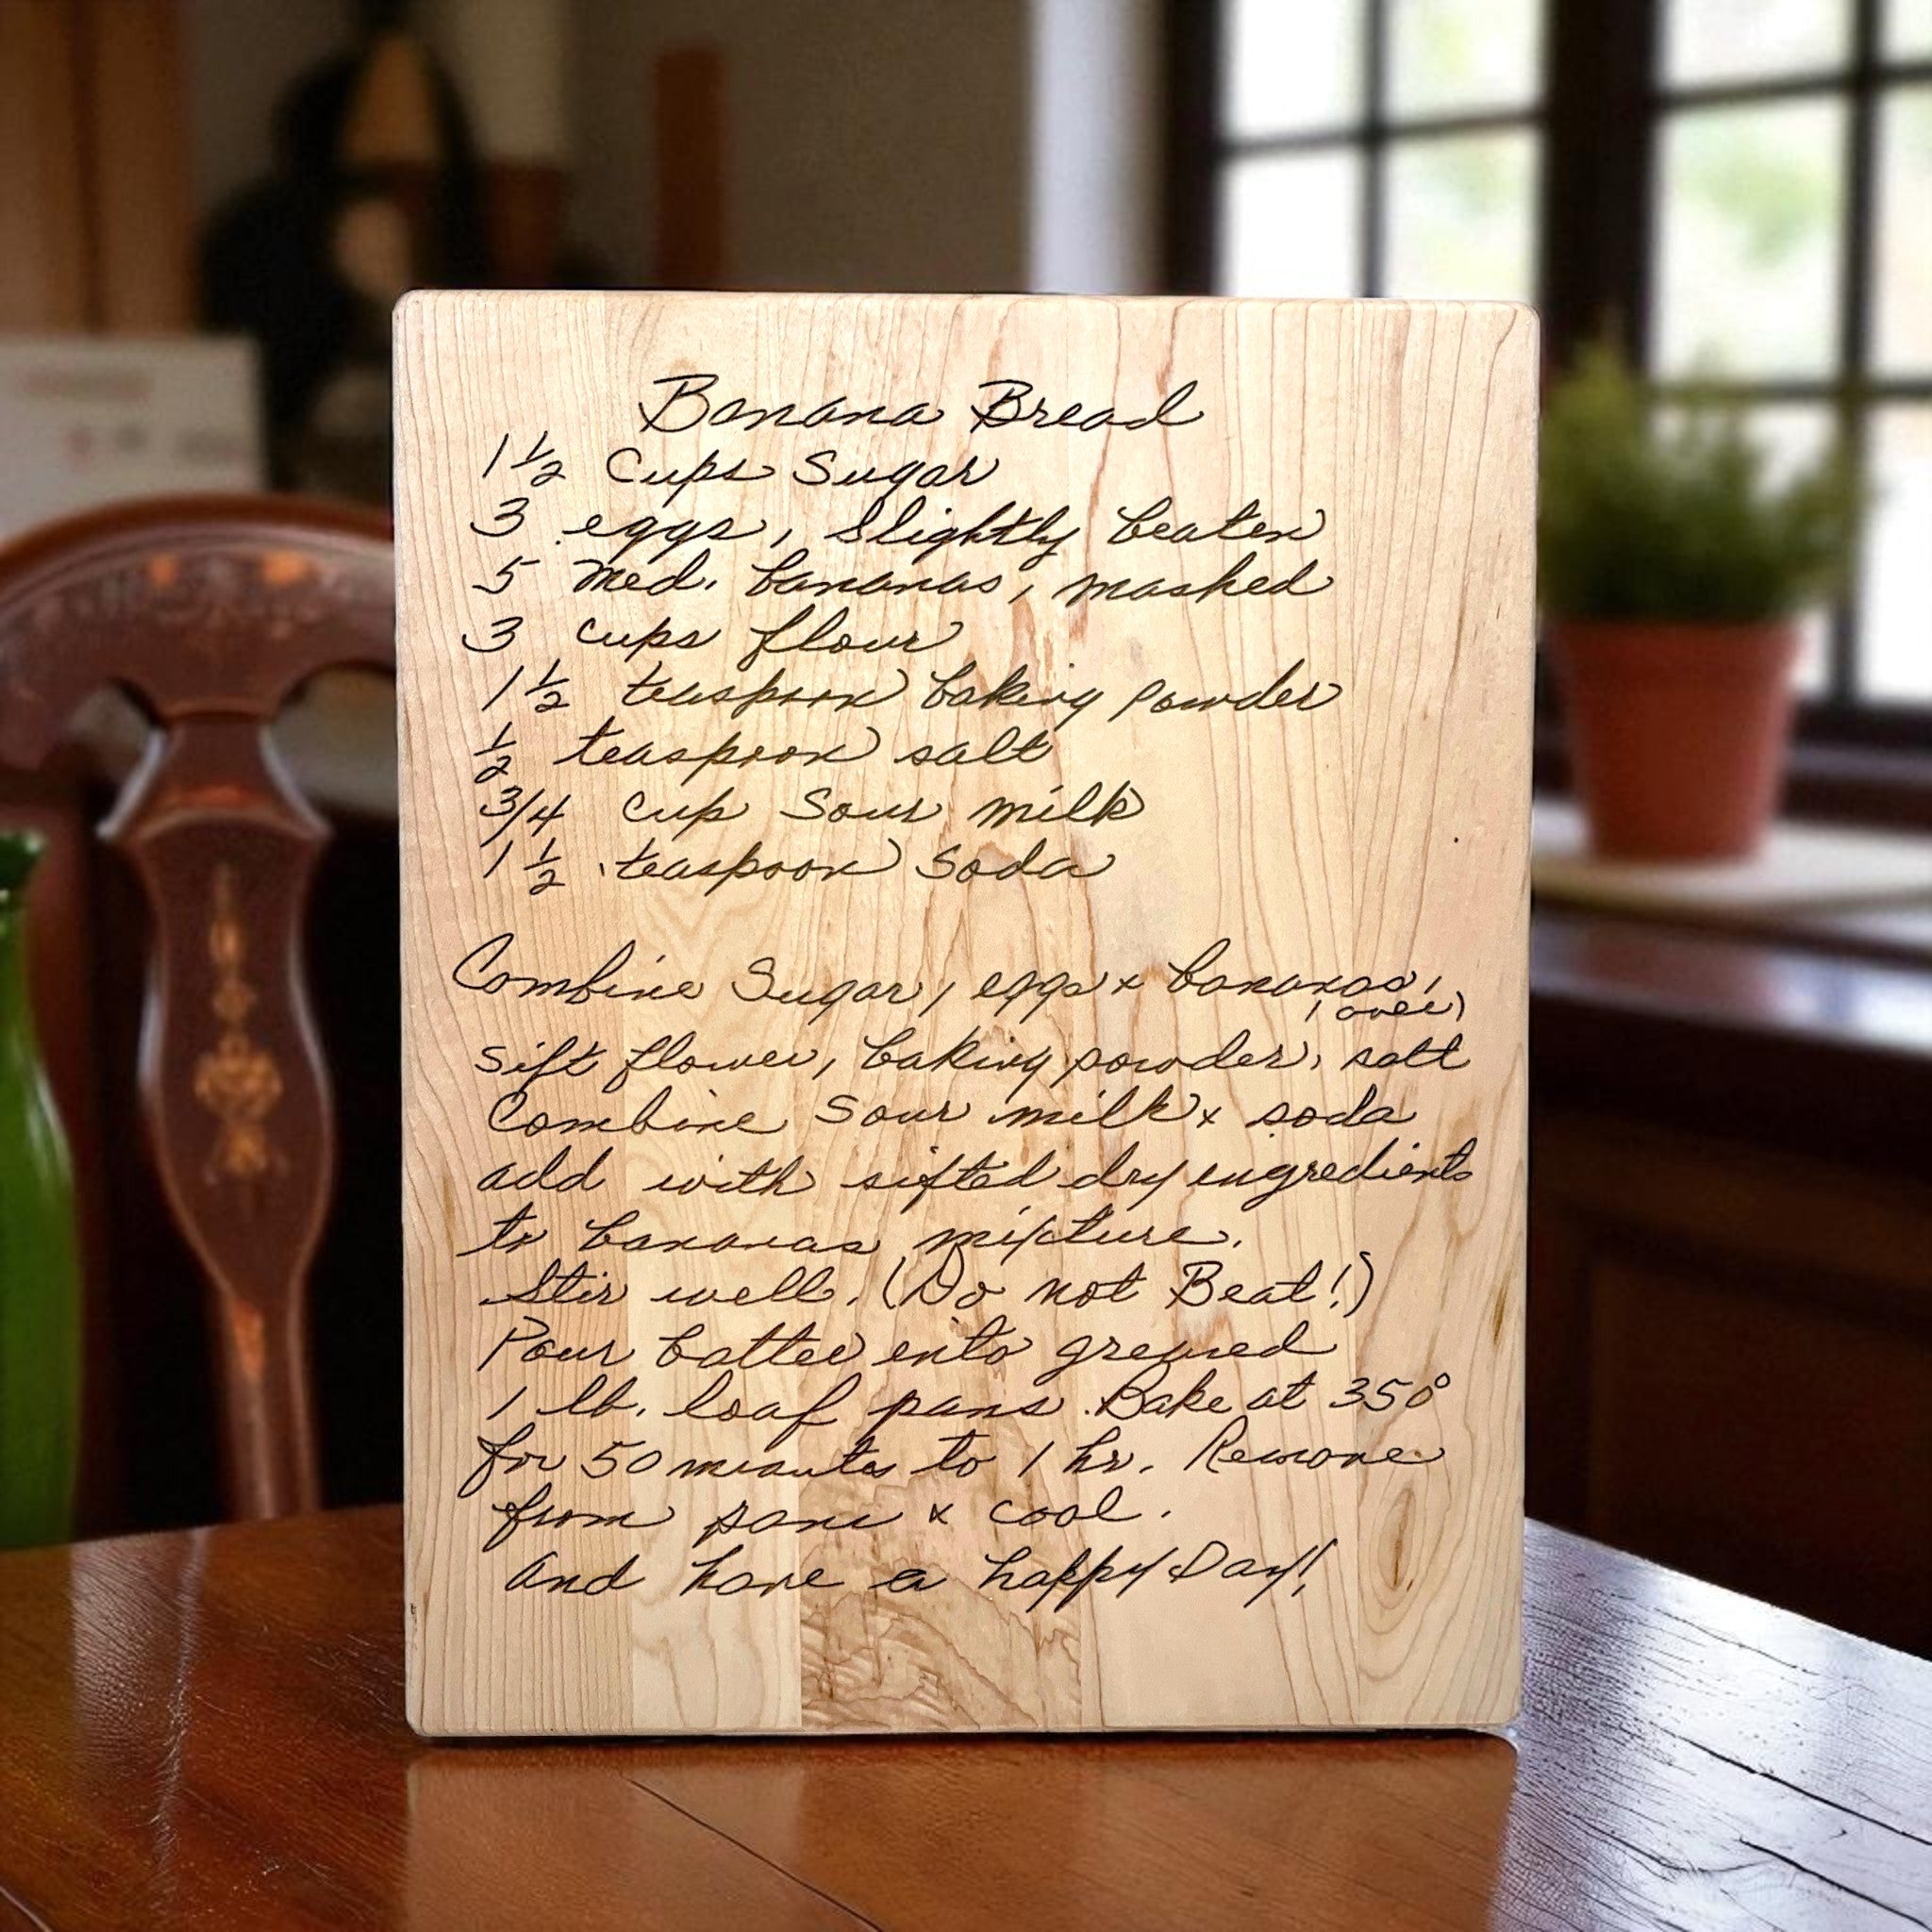 Banana Bread
1 1/2 Cups Sugar
3 eggs, Slightly beaten
5 med. bananas, mashed
3 cups flour
1 1/2 teaspoon baking powder
1/2 teaspoon salt
3/4 cup Sour milk
1 1/2 teaspoon Soda
Combine Sugar, eggs & bananas,
(over)
Sift flower, baking powder, salt
Combine Sour milk & soda
add with sifted dry ingredients
to bananas mixture.
Stir well. (Do not Beat!)
Pour batter into greased
1 lb. loaf pans. Bake at 350°
for 50 minutes to 1 hr. Remove
from pans & cool.
And have a happy Day!